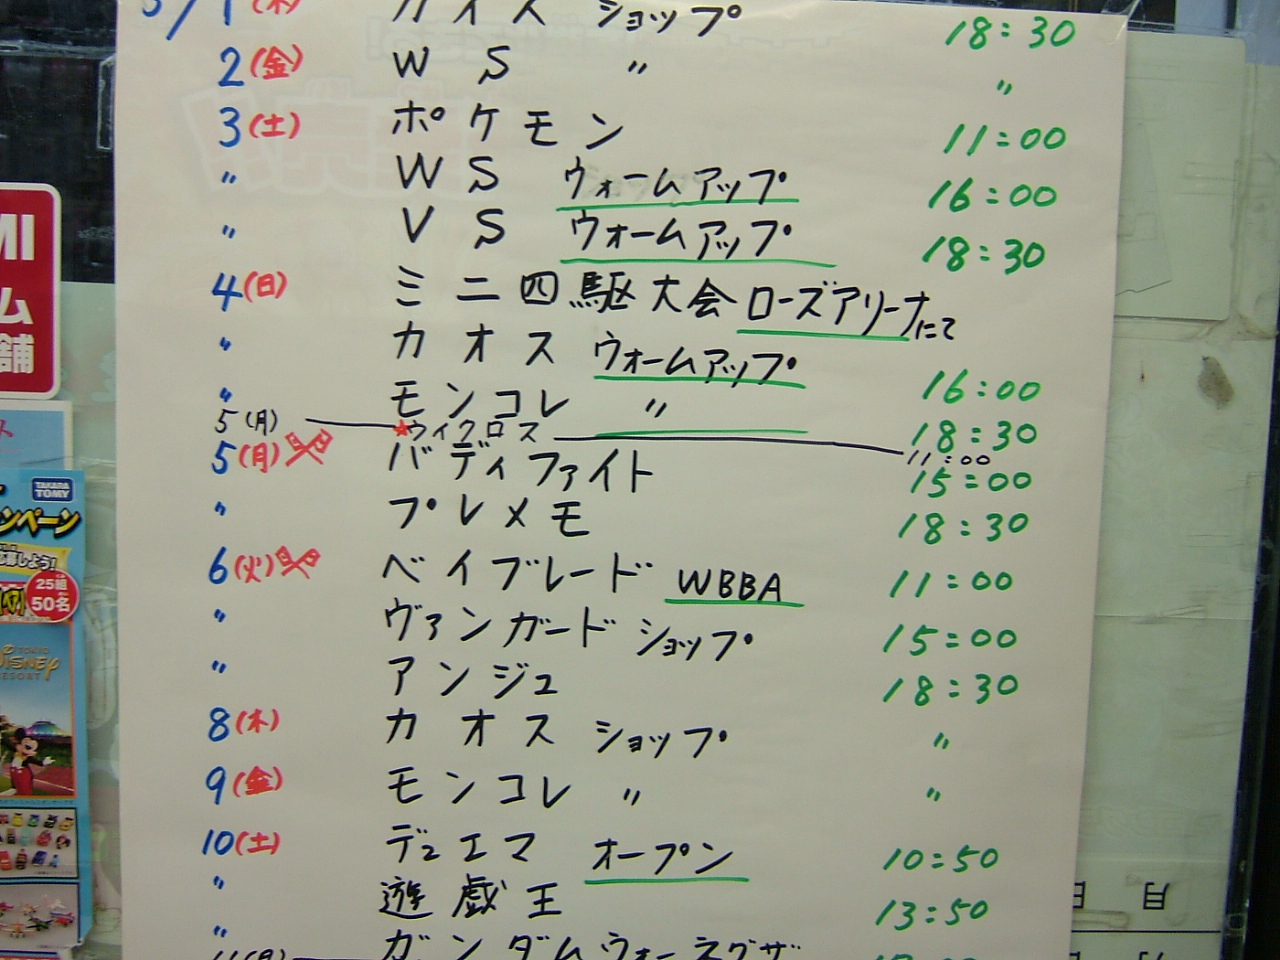 5/1(木) カオス ショップ 18:30
2(金) WS 〃 〃
3(土) ポケモン 11:00
〃 WS ウォームアップ 16:00
〃 VS ウォームアップ 18:30
4(日) ミニ四駆大会 ローズアリーナにて
〃 カオス ウォームアップ 16:00
〃 モンコレ 〃 18:30
5(月) ★ウィクロス 11:00
5(月) バディファイト 15:00
〃 プレメモ 18:30
6(火) ベイブレード WBBA 11:00
〃 ヴァンガード ショップ 15:00
〃 アンジュ 18:30
8(木) カオス ショップ 〃
9(金) モンコレ 〃 〃
10(土) デュエマ オープン 10:50
〃 遊戯王 13:50
〃 ガンダムウォーネグザ
MI
ム
舗
TAKARA TOMY
ンペーン
しよう!
25組
50名
TOKYO
DISNEY
RESORT
月
日